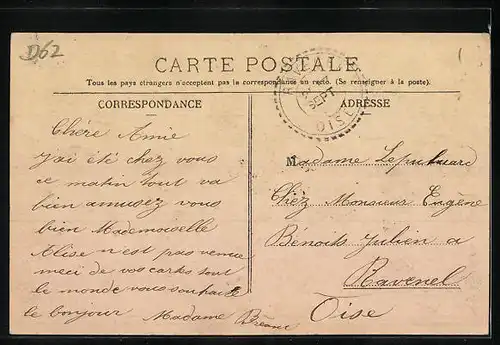 D62
CARTE POSTALE
Tous les pays étrangers n'acceptent pas la correspondance au recto. (Se renseigner à la poste)
CORRESPONDANCE
Chére Amie
j'ai été chez vous
ce matin tout va
bien amusez vous
bien Mademoiselle
Alise n'est pas venue
merci de vos cartes tout
le monde vous souhaite
le bonjour Madame
SEPT
OISE
ADRESSE
Madame
Chéz Monsieur Eugène
Bénoits Julien a
Ravenel
Oise